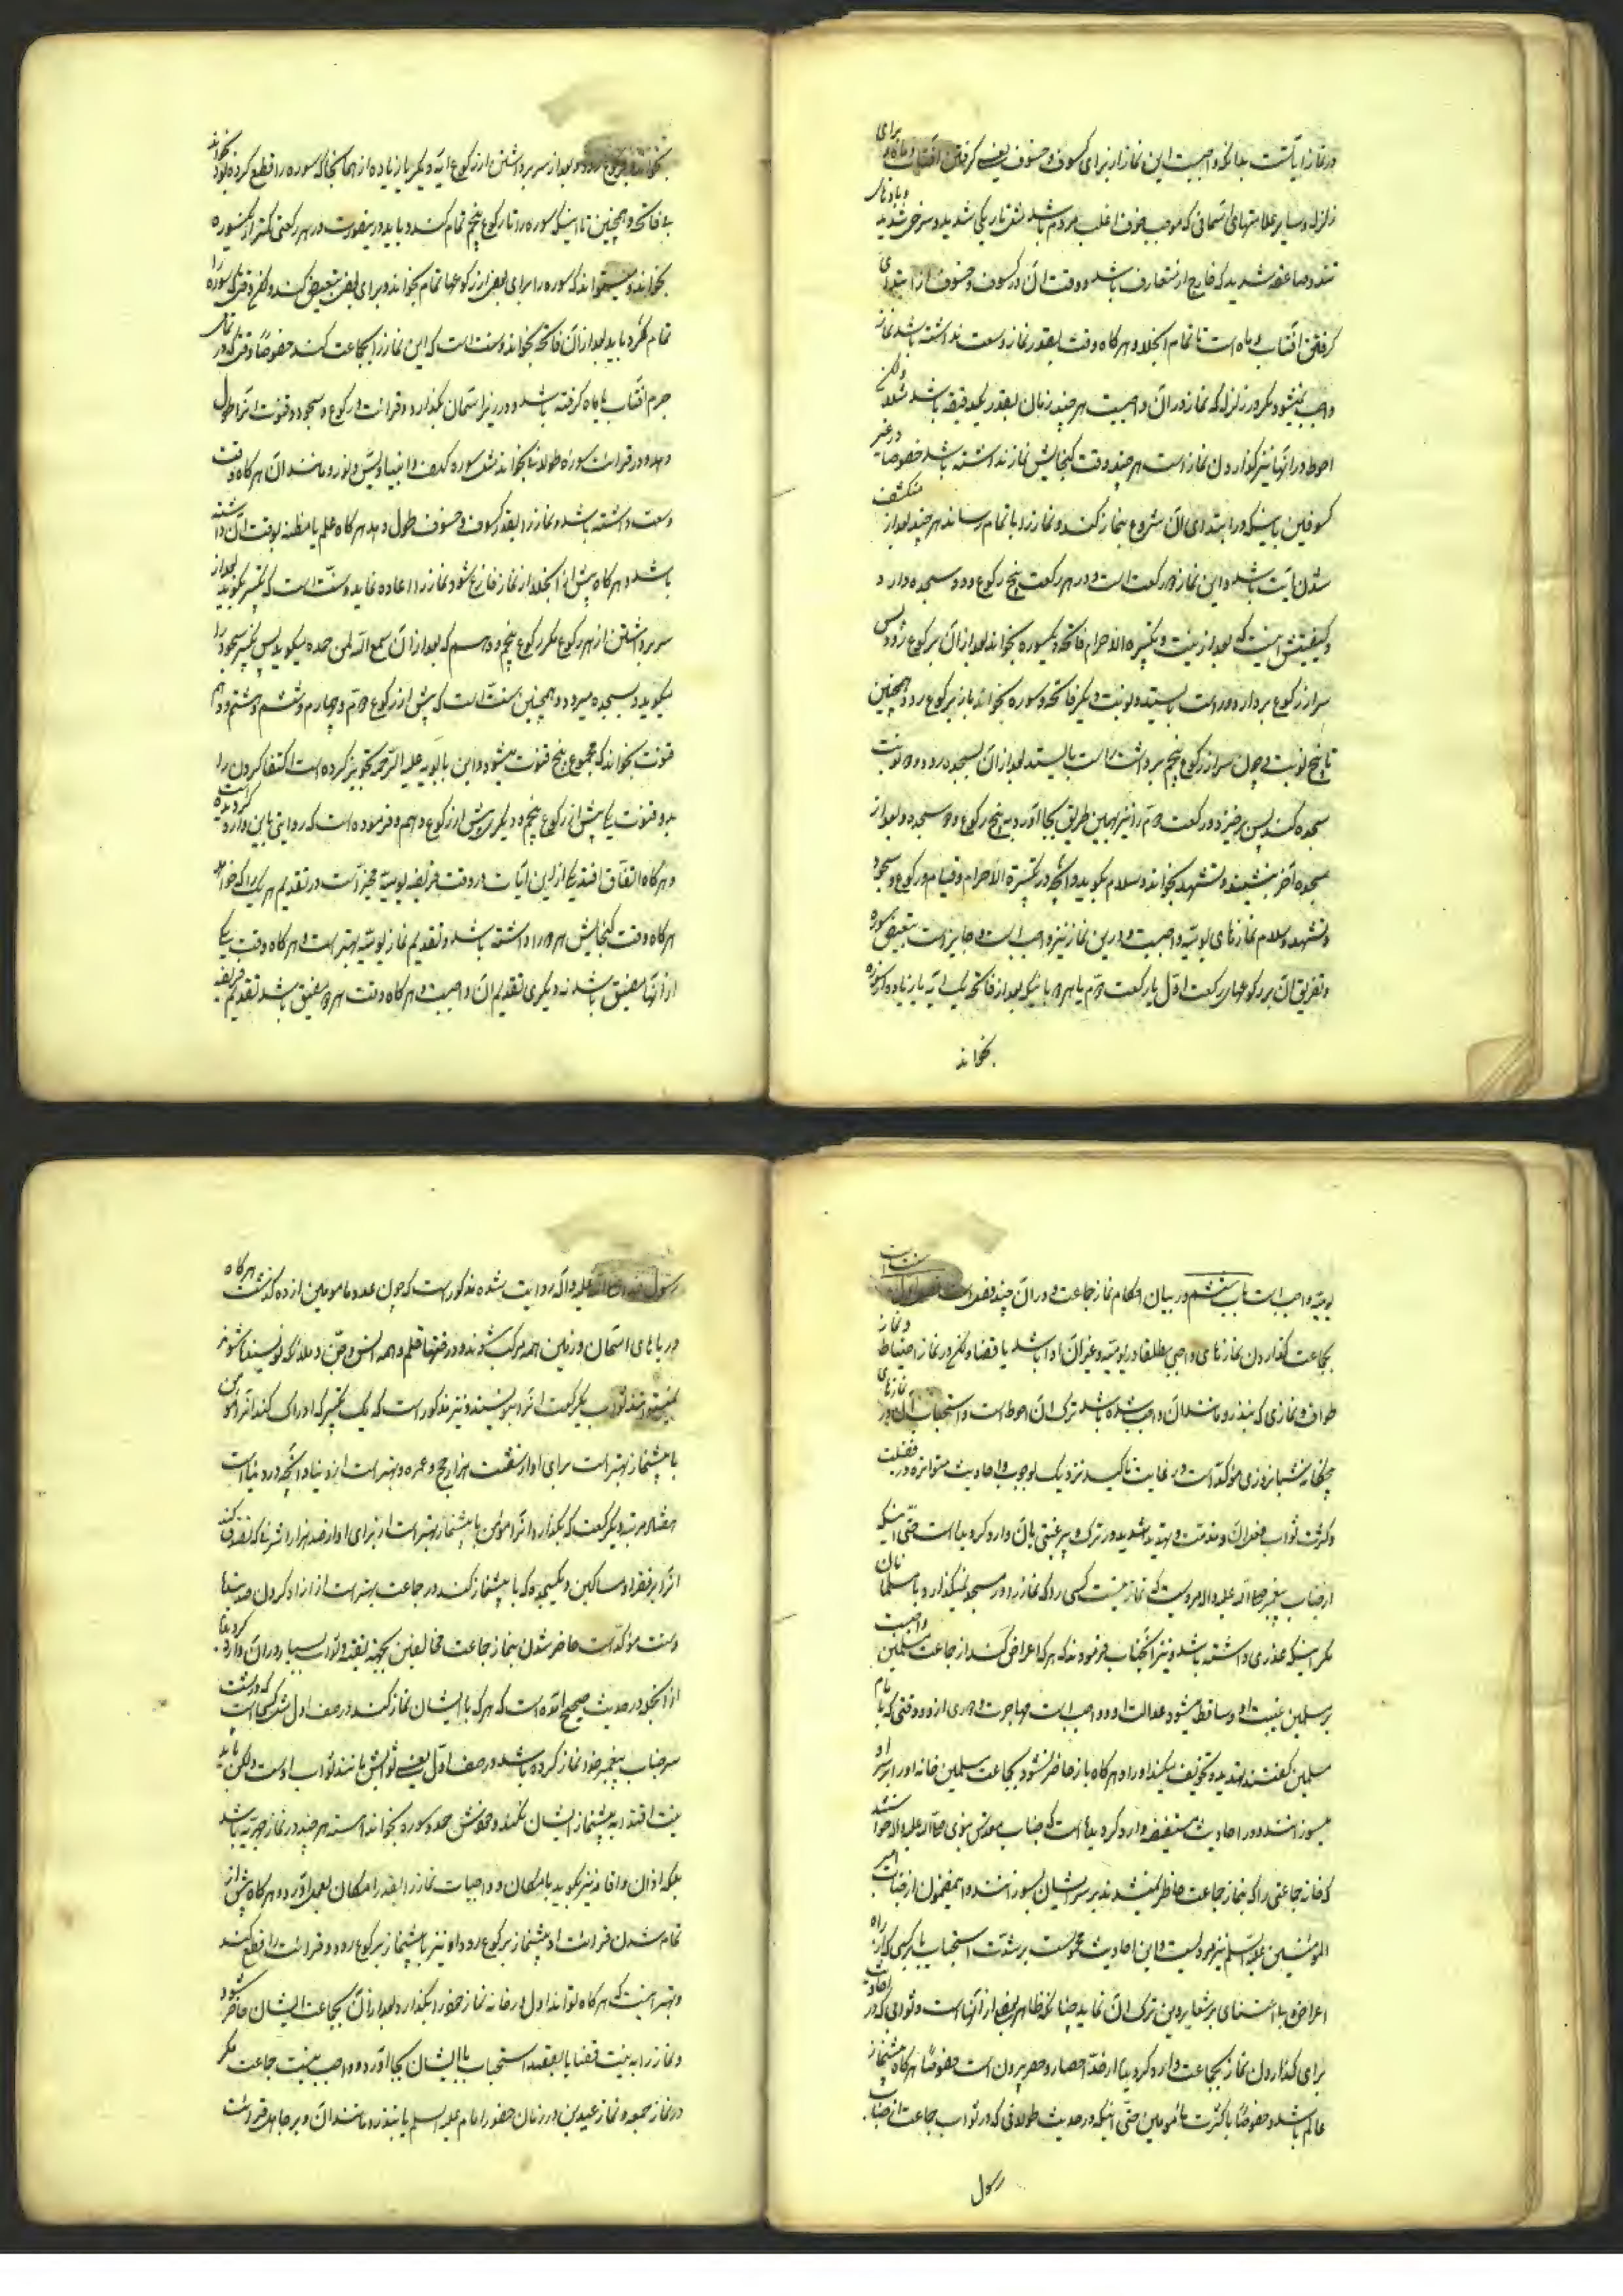 در نماز آیاتست بدانکه واجبست این نماز از برای کسوف و خسوف یعنی گرفتن آفتاب و ماه و برای
زلزله و سایر علامتهای آسمانی که موجب خوف اغلب مردم باشد مثل تاریکی شدید و سرخی شدید و بادهای
تند و صاعقه شدید که خارج از متعارف باشد و وقت آن در کسوف و خسوف از ابتدای
گرفتن آفتاب و ماه است تا تمام انجلا و هر گاه وقت بقدر نماز وسعت نداشته باشد نماز
واجب نمیشود مگر در زلزله که نماز در آن واجبست هر چند زمان بقدر یکدقیقه باشد مثلا ولکن
احوط در آنها نیز گذاردن نماز است هر چند وقت گنجایش نماز نداشته باشد خصوصا در غیر
کسوفین باینکه در ابتدای آن شروع بنماز کند و نماز را باتمام رساند هر چند بعد از منکشف
شدن آیت باشد و این نماز دو رکعت است و در هر رکعت پنج رکوع و دو سجده دارد و
کیفیتش اینست که بعد از نیت و تکبیرة الاحرام فاتحه و یکسوره بخواند بعد از آن برکوع رود پس
سر از رکوع بردارد و راست بایستد و نوبت دیگر فاتحه و سوره بخواند باز برکوع رود و همچنین
تا پنج نوبت و چون سر از رکوع پنجم برداشت راست بایستد بعد از آن بسجده رود و دو نوبت
سجده کند پس برخیزد و رکعت دویم را نیز بهمین طریق بجا آورد به پنج رکوع و دو سجده و بعد از
سجده آخر بنشیند و تشهد بخواند و سلام بگوید و آنچه در تکبیرة الاحرام و قیام و رکوع و سجود
و تشهد و سلام نمازهای یومیه واجبست در این نماز نیز واجب است و جایز است تبعیض سوره
و تفریق آن بر رکوعهای رکعت اول یا رکعت دویم یا هر دو باینکه بعد از فاتحه یک آیه یا زیاده از سوره
بخواند
بخواند و برکوع رود و بعد از سر برداشتن از رکوع آیه دیگر یا زیاده از همانجا که سوره را قطع کرده بود بخواند
بی فاتحه و همچنین تا اینکه سوره را تا رکوع پنجم تمام کند و باید در اینصورت در هر رکعتی کمتر از یکسوره
بخواند و میتواند که سوره را برای بعض از رکوعها تمام بخواند و برای بعض تبعیض کند و لکن هر وقت که سوره را
تمام کرد باید بعد از آن فاتحه بخواند و سنت است که این نماز را بجماعت کند خصوصا وقتی که در تمام
جرم آفتاب یا ماه گرفته باشد و در زیر آسمان بگذارد و قرائت و رکوع و سجود و قنوت آنرا طول
دهد و در قرائت سوره طولانی بخواند مثل سوره کهف و انبیا و یس و نور و مانند آن هر گاه وقت
وسعت داشته باشد و نماز را بقدر کسوف و خسوف طول دهد هر گاه علم یا مظنه بوقت آن داشته
باشد و هر گاه پیش از انجلا از نماز فارغ شود نماز را اعاده نماید و سنت است که تکبیر بگوید بعد از
سر برداشتن از هر رکوع مگر رکوع پنجم و دهم که بعد از آن سمع الله لمن حمده میگوید پس تکبیر سجود را
میگوید و بسجده میرود و همچنین سنت است که پیش از رکوع دویم و چهارم و ششم و هشتم و دهم
قنوت بخواند که مجموع پنج قنوت میشود و ابن بابویه علیه الرحمه تجویز کرده است اکتفا کردن را
بدو قنوت یکی پیش از رکوع پنجم و دیگر پیش از رکوع دهم و فرموده است که روایتی باین وارد گردیده است
و هر گاه اتفاق افتد یکی از این آیات در وقت فریضه یومیه مخیر است در تقدیم هر یک را که خواهد
هر گاه وقت گنجایش هر دو را داشته باشد و تقدیم نماز یومیه بهتر است و هر گاه وقت یکی
از آنها مضیق باشد نه دیگری تقدیم آن واجبست و هر گاه وقت هر دو مضیق باشد تقدیم فریضه
یومیه واجب است باب ششم در بیان احکام نماز جماعت و در آن چند فصل است فصل اول
بجماعت گذاردن نمازهای واجبی مطلقا در یومیه و غیر آن ادا باشد یا قضا و لکن در نماز احتیاط و نماز
طواف و نمازی که بنذر و مانند آن واجب شده باشد ترک آن احوط است و استحباب آن در نمازهای
پنجگانه شبانروزی مؤکد است در غایت تأکید نزدیک بوجوب و احادیث متواتره در فضیلت
و کثرت ثواب فعل آن و مذمت و تهدید شدید در ترک و بی رغبتی بآن وارد گردیده است حتی اینکه
از جناب پیغمبر صلی الله علیه و آله مرویست که نماز نیست کسی را که نماز را در مسجد نمیگذارد با مسلمانان
مگر اینکه عذری داشته باشد و نیز آنجناب فرمودند که هر که اعراض کند از جماعت مسلمین واجبست
بر مسلمین غیبت او و ساقط میشود عدالت او و واجب است مهاجرت و دوری از او و وقتی که بامام
مسلمین گفتند تهدید و تخویف میکند او را و هر گاه باز حاضر نشود بجماعت مسلمین خانه او را بر سر او
میسوزانند و در احادیث مستفیضه وارد گردیده است که جناب مقدس نبوی صلی الله علیه و آله خواستند
که خانه جماعتی را که بنماز جماعت حاضر نمیشدند بر سر ایشان بسوزانند و اینمضمون از جناب امیر
المؤمنین علیه السلم نیز مرویست و این احادیث محمولست بر شدت استحباب یا بر کسی که از راه
اعراض و بی اعتنائی بر شعایر دین ترک آن نماید چنانکه ظاهر بعض از آنهاست و ثوابی که در احادیث
برای گذاردن نماز بجماعت وارد گردیده از حد احصا و حصر بیرون است خصوصا هر گاه پیشنماز
عالم باشد و خصوصا با کثرت مأمومین حتی اینکه در حدیث طولانی که در ثواب جماعت از جناب
رسول
رسول خدا صلی الله علیه و آله روایت شده مذکور است که چون عدد مأمومین از ده گذشت هر گاه
دریاهای آسمان و زمین همه مرکب شوند و درختها قلم و همه انس و جن و ملائکه نویسنده شوند
نمیتوانند ثواب یکرکعت آنرا بنویسند و نیز مذکور است که یک تکبیر که ادراک کند آنرا مؤمن
با پیشنماز بهتر است برای او از شصت هزار حج و عمره و بهتر است از دنیا و آنچه در دنیاست
هفتاد مرتبه و یکرکعت که بگذارد آنرا مؤمن با پیشنماز بهتر است از برای او از صد هزار اشرفی که تصدق کند
آنرا بر فقراء و مساکین و یکسجده که با پیشنماز کند در جماعت بهتر است از آزاد کردن صد بنده
و سنت مؤکد است حاضر شدن بنماز جماعت مخالفین بجهة تقیه و ثواب بسیار در آن وارد گردیده
از آنجمله در حدیث صحیح آمده است که هر که با ایشان نماز کند در صف اول مثل کسی است که در پشت
سر جناب پیغمبر خدا نماز کرده باشد در صف اول یعنی ثوابش مانند ثواب اوست و لکن باید
نیت اقتدا به پیشنماز ایشان نکند و خودش حمد و سوره بخواند آهسته هر چند در نماز جهریه باشد
بلکه اذان و اقامه نیز بگوید با امکان و واجبات نماز را بقدر امکان بعمل آورد و هر گاه پیش از
تمام شدن قرائت او پیشنماز برکوع رود او نیز با پیشنماز برکوع رود و قرائت را قطع کند
و بهتر اینست که هر گاه تواند اول در خانه نماز خود را بگذارد و بعد از آن بجماعت ایشان حاضر شود
و نماز را به نیت قضا یا بقصد استحباب با ایشان بجا آورد و واجب نیست جماعت مگر
در نماز جمعه و نماز عیدین در زمان حضور امام علیه السلم یا بنذر و مانند آن و بر جاهل قرائت